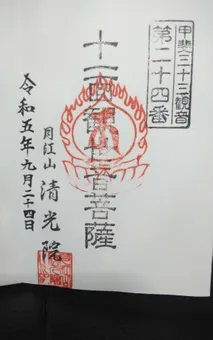 甲斐三十三観音
第二十四番
十一面観世音菩薩
清光院
令和五年九月二十四日